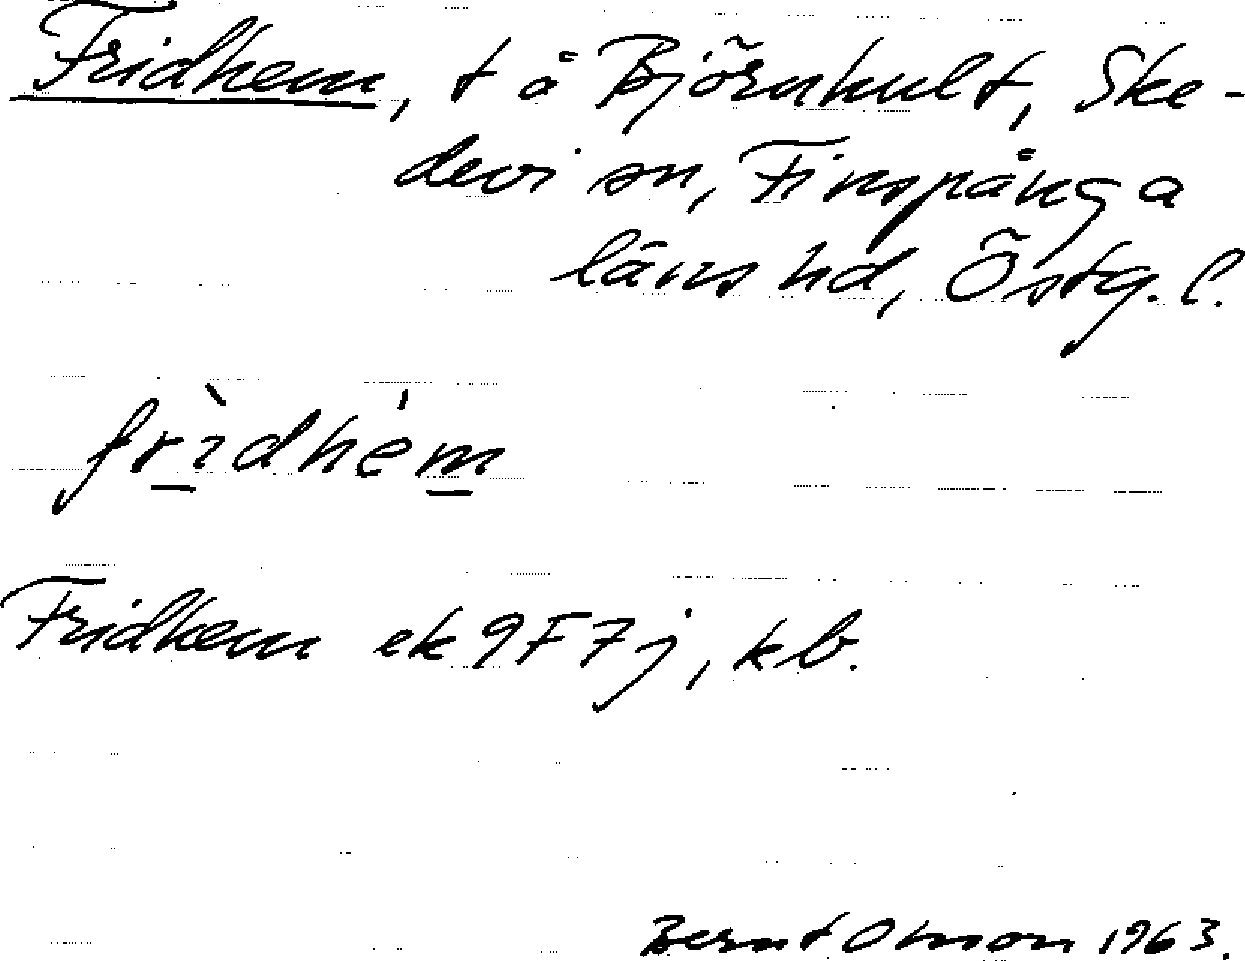 Fridhem, t å Björnhult, Ske-
devi sn, Finspånga
läns hd, Östg. l.
frìdhém
Fridhem ek 9F7j, kb.
Bernt Olsson 1963.